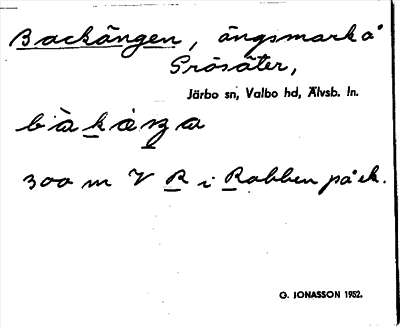 Backängen, ängsmark å
Prösäter,
Järbo sn, Valbo hd, Älvsb. ln.
bàkäŋa
300 m V R i Robben på ek.
G. JONASSON 1952.